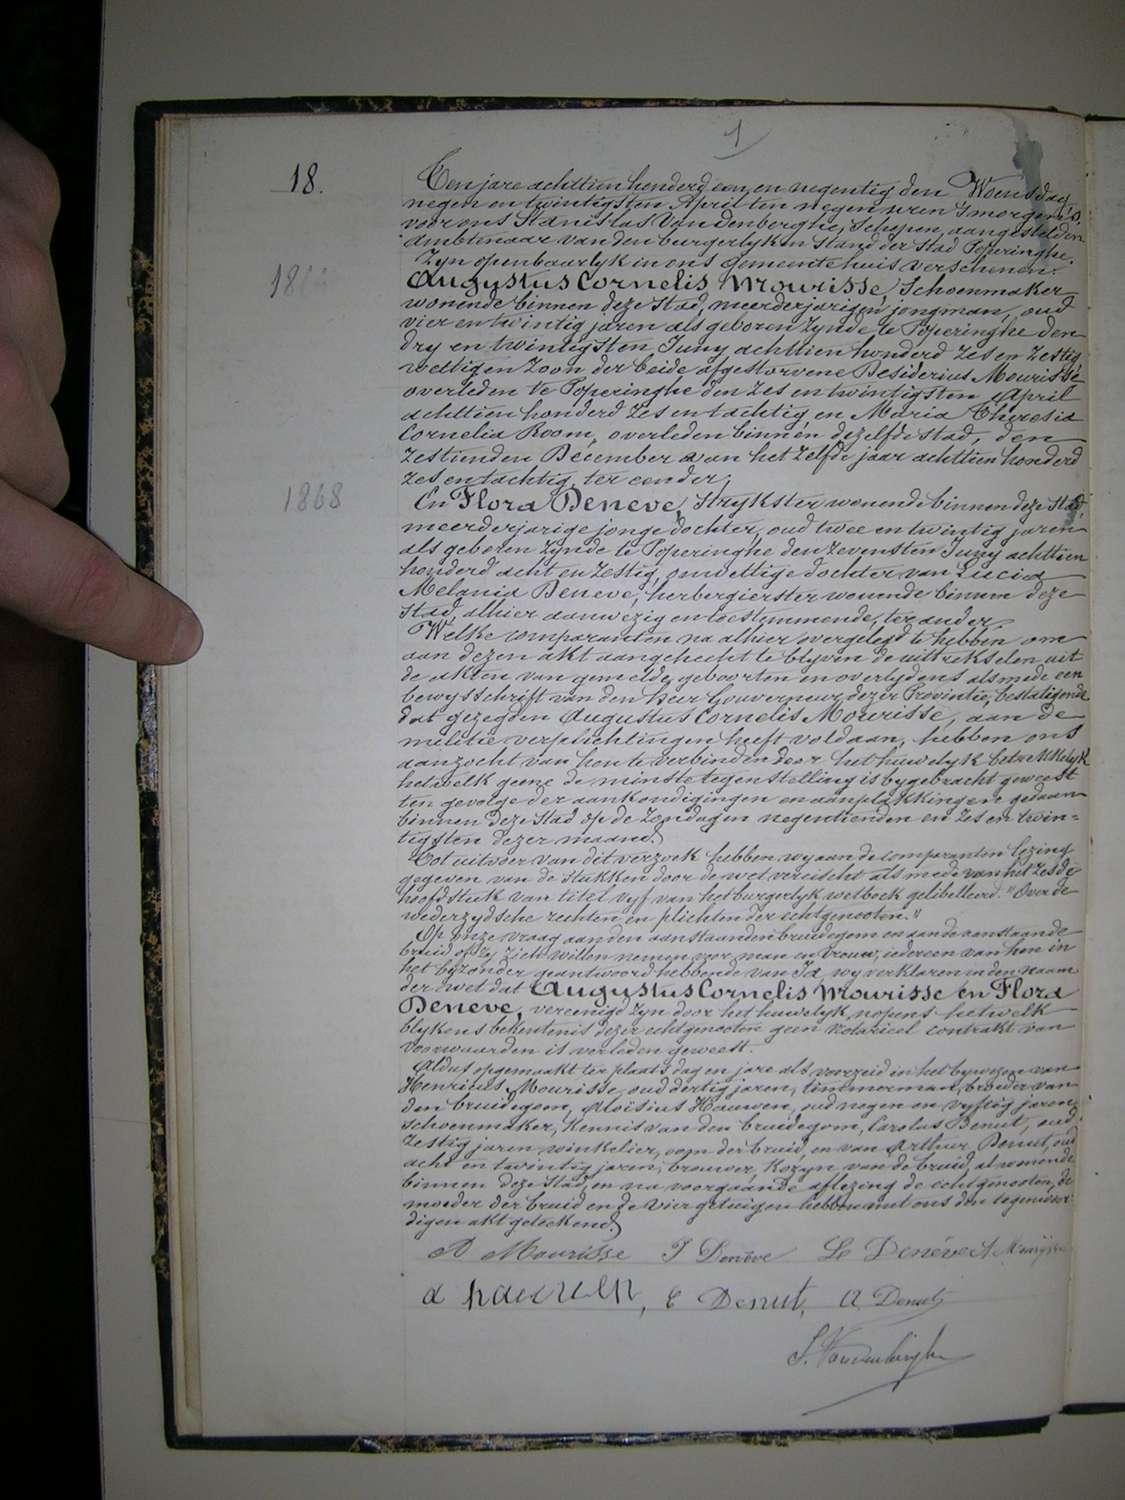 1
18.
Ten jare achttien honderd een en negentig den Woensdag
negen en twintigsten April ten negen uren 's morgens,
voor ons Stanislas Vandenberghe, Schepen, aangestelden
ambtenaar van den burgerlyken Stand der Stad Poperinghe.
Zyn openbaarlyk in ons gemeentehuis verschenen:
Augustus Cornelis Mourisse, Schoenmaker
wonende binnen deze Stad, meerderjarigen jongman, oud
vier en twintig jaren als geboren zynde te Poperinghe den
dry en twintigsten Juny achttien honderd zes en zestig
wettigen Zoon der beide afgestorvene Desiderius Mourisse
overleden te Poperinghe den zes en twintigsten April
achttien honderd zes en tachtig en Maria Theresia
Cornelia Room, overleden binnen dezelfde stad, den
zestienden December van het zelfde jaar achttien honderd
zes en tachtig, ter eender,
1868
En Flora Deneve, Strykster wonende binnen deze Stad,
meerderjarige jonge dochter, oud twee en twintig jaren
als geboren zynde te Poperinghe den zevensten Juny achttien
honderd acht en zestig, onwettige dochter van Lucia
Melania Deneve, herbergierster wonende binnen deze
Stad, alhier aanwezig en toestemmende, ter ander.
Welke comparanten na alhier overgelegd te hebben om
aan dezen akt aangehecht te blyven de uittrekselen uit
de akten van gemelde geboorten en overlydens alsmede een
bewysschrift van den heer Gouverneur dezer Provintie, bestatigende
dat gezegden Augustus Cornelis Mourisse, aan de
militie verplichtingen heeft voldaan, hebben ons
aanzocht van hen te verbinden door het huwelyk betrekkelyk
hetwelk geene de minste tegenstelling is bygebracht geweest
ten gevolge der aankondigingen en aanplakkingen gedaan
binnen deze Stad op de Zondagen negentienden en zes en twin=
tigsten dezer maand.
Tot uitvoer van dit verzoek hebben wy aan de comparanten lezing
gegeven van de stukken door de wet vereischt alsmede van het zesde
hoofdstuk van titel vyf van het burgerlyk wetboek gelibelleerd: "Over de
wederzydsche rechten en plichten der echtgenooten."
Op onze vraag aan den aanstaanden bruidegom en aan de aanstaande
bruid of zy zich willen nemen voor man en vrouw, iedereen van hen in
het byzonder geantwoord hebbende van Ja, wy verklaren in den naam
der wet dat Augustus Cornelis Mourisse en Flora
Deneve, vereenigd zyn door het huwelyk, nopens hetwelk
blykens bekentenis dezer echtgenooten geen notarieel contrakt van
voorwaarden is verleden geweest.
Aldus opgemaakt ter plaats dag en jare als voorzeid in het bywezen van
Henricus Mourisse, oud dertig jaren, timmerman, broeder van
den bruidegom, Aloïsius Hauwen, oud negen en vyftig jaren,
Schoenmaker, kennis van den bruidegom, Carolus Denut, oud
zestig jaren winkelier, oom der bruid, en van Arthur Denut, oud
acht en twintig jaren, brouwer, kozyn van de bruid, al wonende
binnen deze Stad, en na voorgaande aflezing de echtgenooten, de
moeder der bruid en de vier getuigen hebben met ons den tegenwoor=
digen akt geteekend.
A Mourisse F Denève Le Denève
a hauwen, C Denut, A Denut
S. Vandenberghe